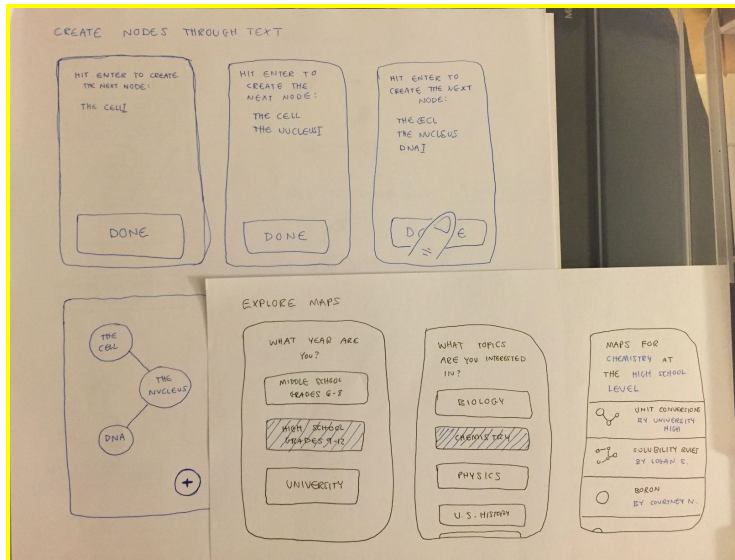 CREATE NODES THROUGH TEXT
HIT ENTER TO CREATE
THE NEXT NODE:
THE CELL
DONE
HIT ENTER TO
CREATE THE
NEXT NODE:
THE CELL
THE NUCLEUS
DONE
HIT ENTER TO
CREATE THE NEXT
NODE:
THE CECL
THE NUCLEUS
DNA
DO E
THE
CELL
THE
NUCLEUS
DNA
+
EXPLORE MAPS
WHAT YEAR ARE
YOU?
MIDDLE SCHOOL
GRADES 6-8
HIGH SCHOOL
GRADES 9-12
UNIVERSITY
WHAT TOPICS
ARE YOU INTERESTED
IN?
BIOLOGY
CHEMISTRY
PHYSICS
U.S. HISTORY
MAPS FOR
CHEMISTRY AT
THE HIGH SCHOOL
LEVEL
UNIT CONVERSIONS
BY UNIVERSITY
HIGH
SOLUBILITY RULES
BY LOGAN S.
BORON
BY COURTNEY N.